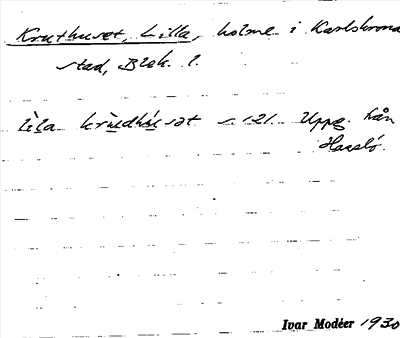 Kruthuset, Lilla, holme i Karlskrona
stad, Blek. l.
lìla krùdhúsət s. 121. Uppg. från
Hasslö.
Ivar Modéer 1930